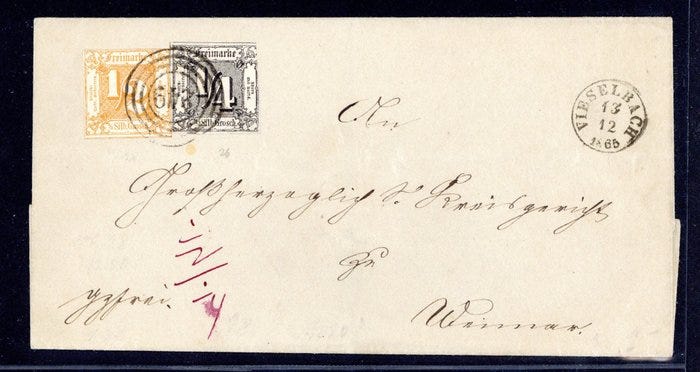 Freimarke Freimarke
1 1/4
Silb. Grosch. Silb. Grosch.
VIESELBACH
13
12
1865
An
Großherzoglich S. Kreisgericht
zu
Weimar.